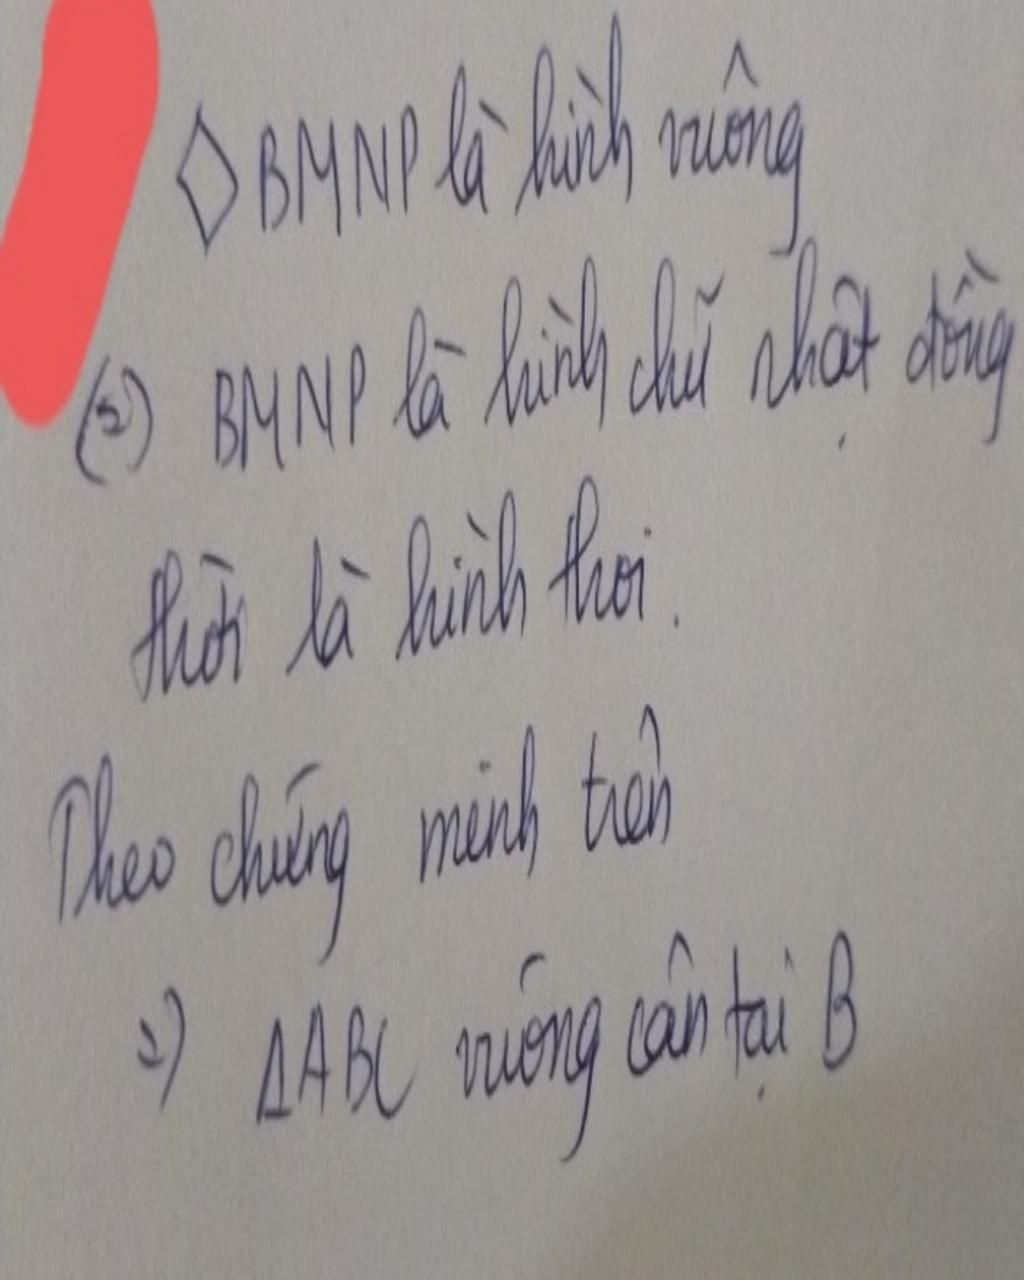 ◇BMNP là hình vuông
(=) BMNP là hình chữ nhật đồng
thời là hình thoi.
Theo chứng minh trên
=) ΔABC vuông cân tại B